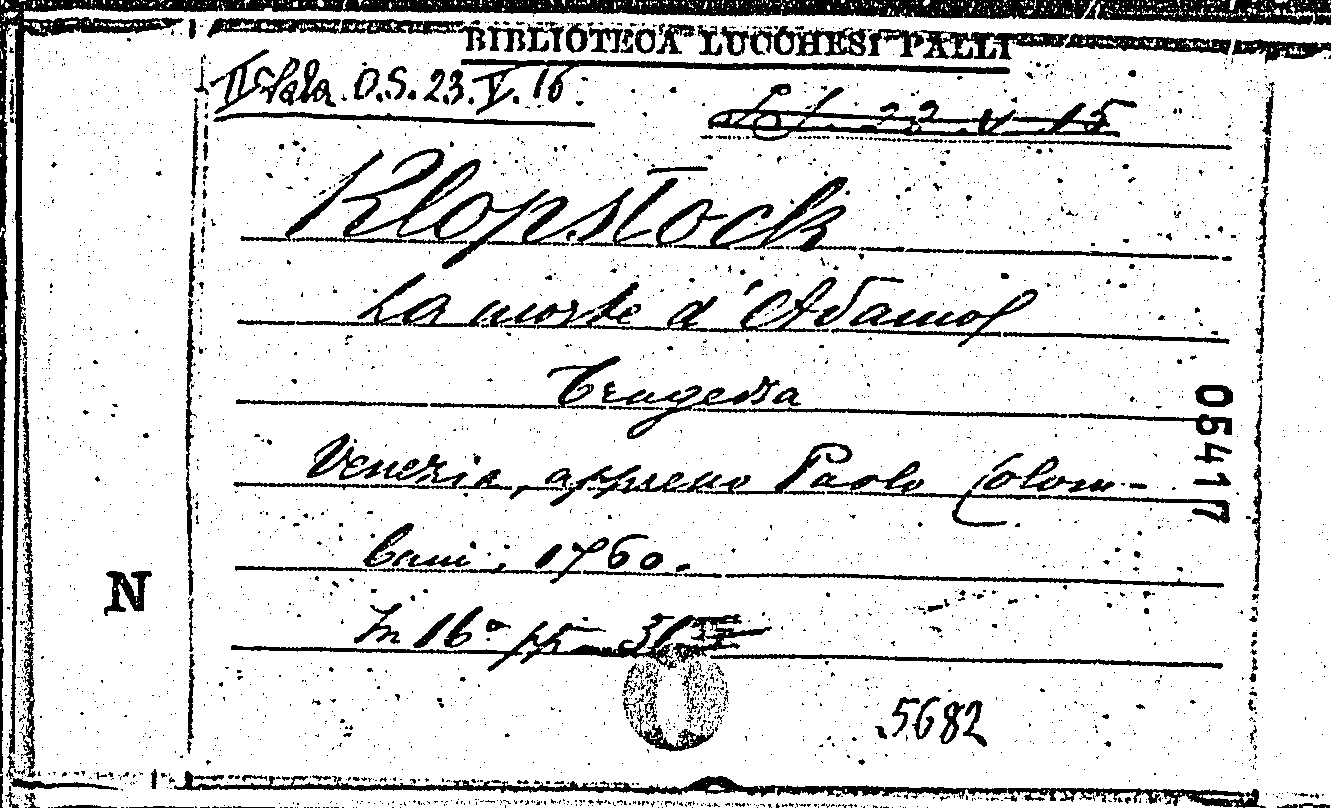 BIBLIOTECA LUCCHESI PALLI
II Sala O.S. 23. V. 16.
22 V 15
Klopstock
La morte d'Adamo
Tragedia
Venezia, appresso Paolo Colom-
bani, 1760.
In 16° pp.
05417
N
5682